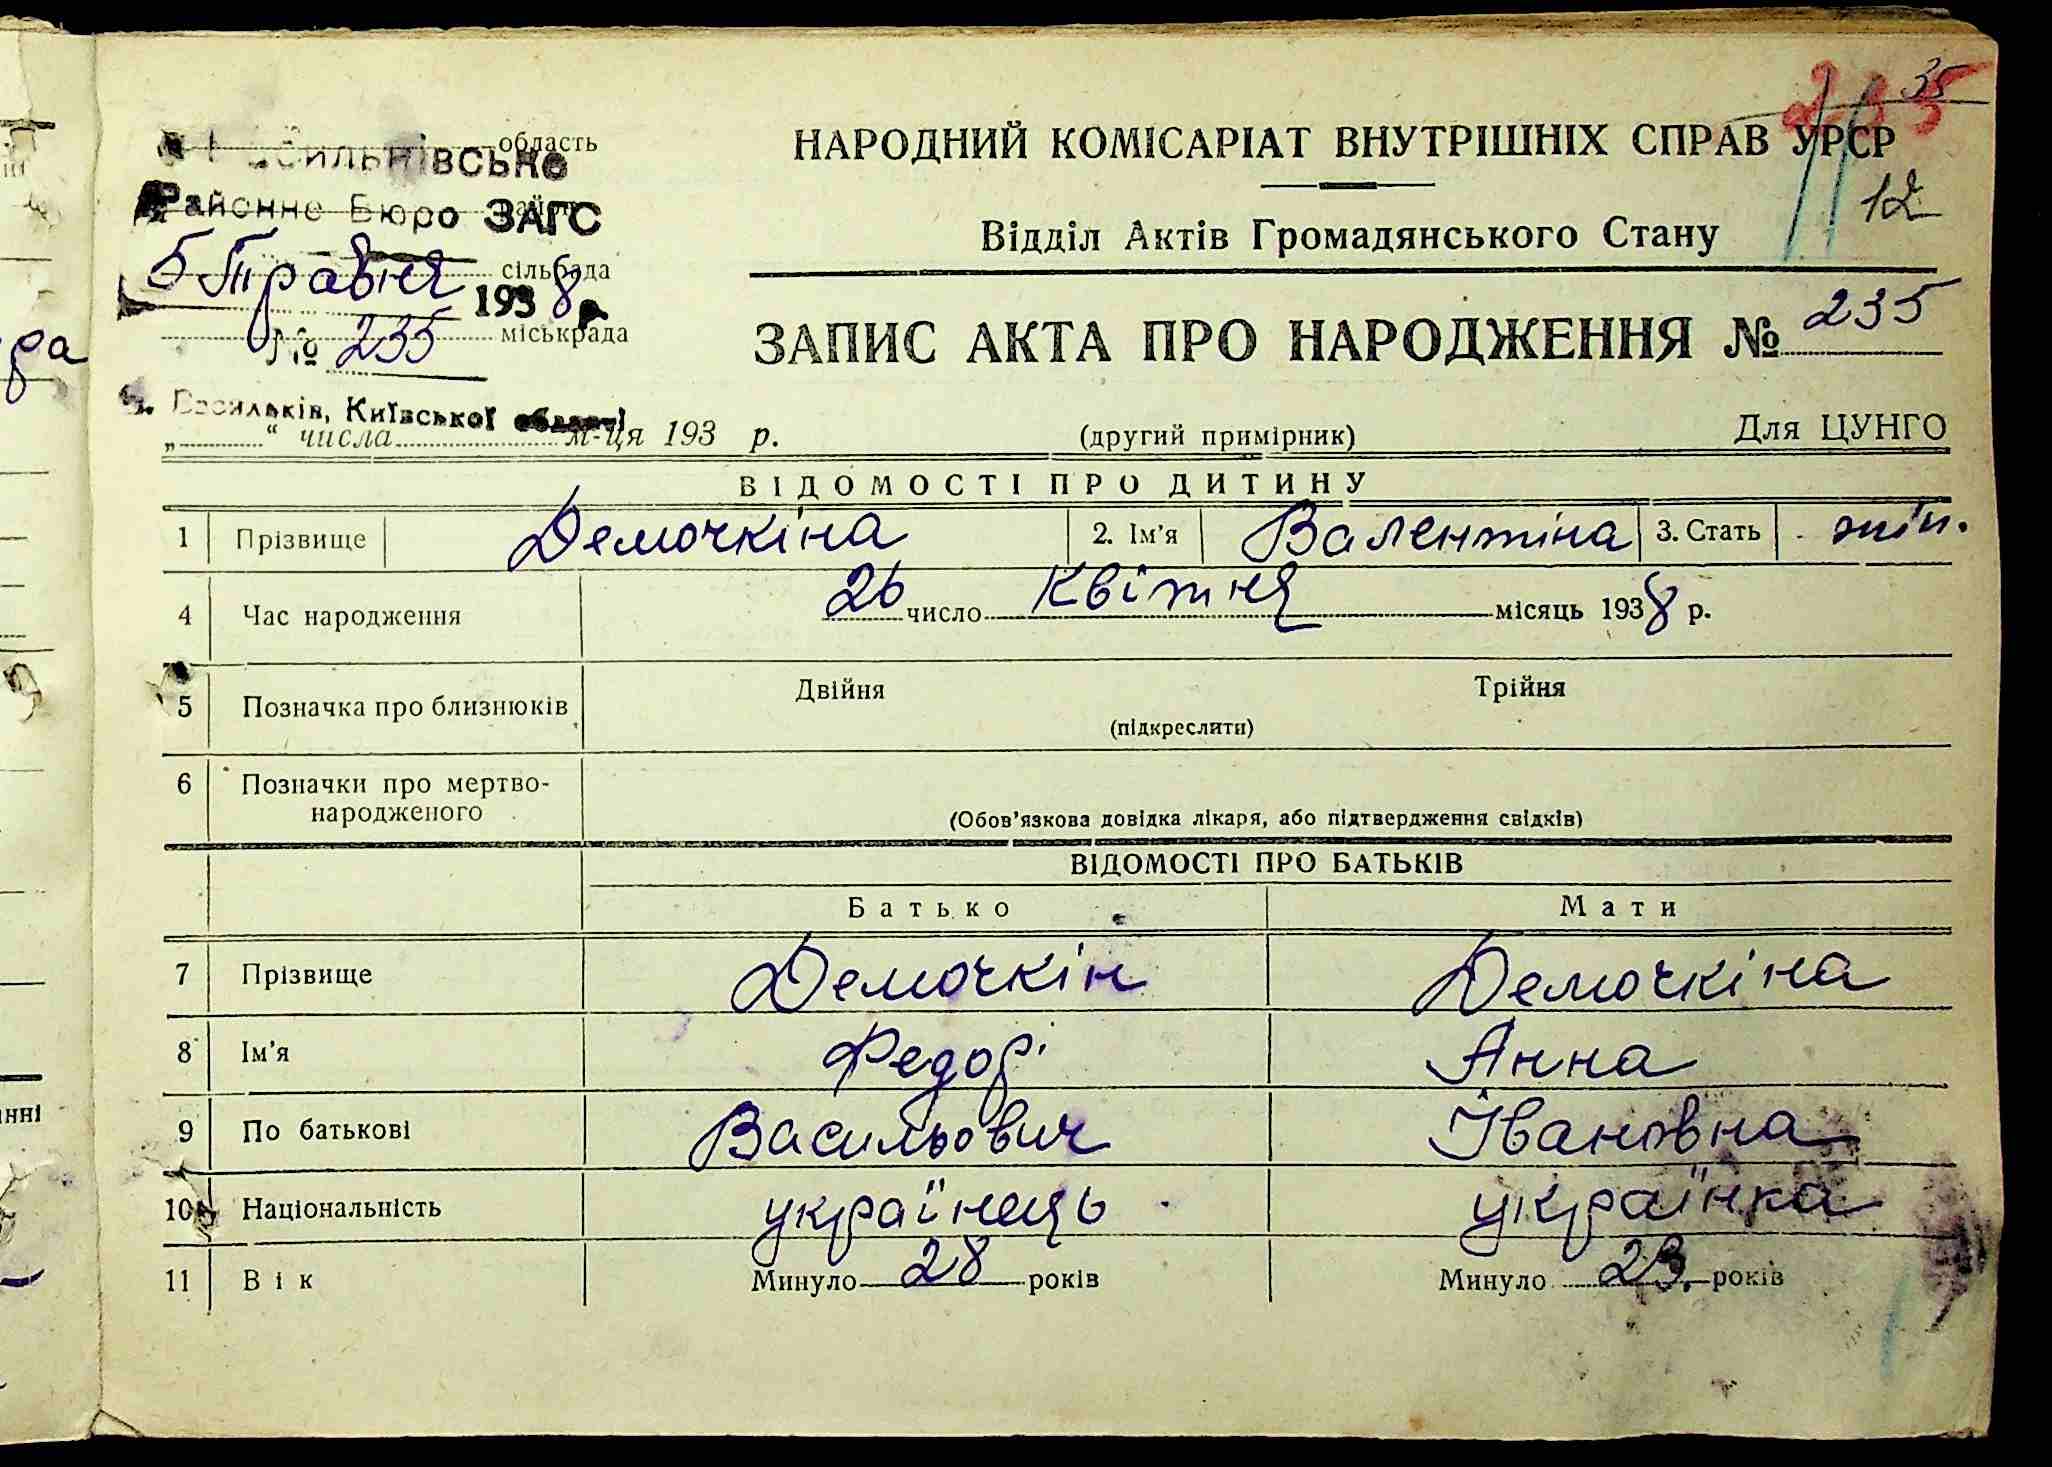 235
35
область
НАРОДНИЙ КОМІСАРІАТ ВНУТРІШНІХ СПРАВ УРСР
Районне Бюро ЗАГС
12
Відділ Актів Громадянського Стану
5 Травня 1938 р.
сільрада
№ 235
міськрада
ЗАПИС АКТА ПРО НАРОДЖЕННЯ № 235
м. Васильків, Київської області
„ “ числа м-ця 193 р.
(другий примірник)
Для ЦУНГО
ВІДОМОСТІ ПРО ДИТИНУ
1 Прізвище Демочкіна 2. Ім'я Валентіна 3. Стать жін.
4 Час народження 26 число Квітня місяць 1938 р.
5 Позначка про близнюків Двійня Трійня
(підкреслити)
6 Позначки про мертво-
народженого
(Обов'язкова довідка лікаря, або підтвердження свідків)
ВІДОМОСТІ ПРО БАТЬКІВ
Батько Мати
7 Прізвище Демочкін Демочкіна
8 Ім'я Федор Анна
9 По батькові Васильович Івановна
10 Національність українець українка
11 Вік Минуло 28 років Минуло 23. років